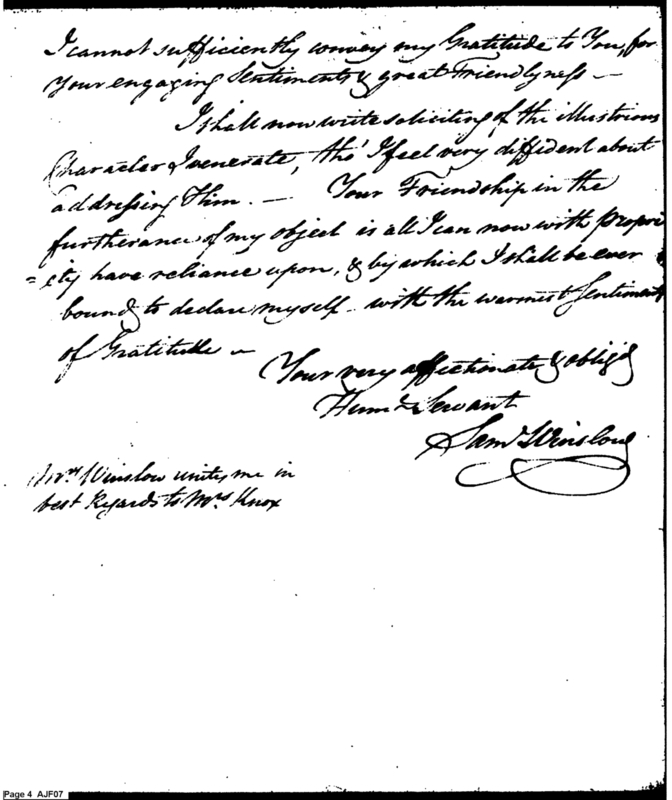 I cannot sufficiently convey my Gratitude to You, for
Your engaging Sentiments & great Friendlyness —
I shall now write soliciting of the illustrious
Character I venerate, tho' I feel very diffident about
addressing Him. — Your Friendship in the
furtherance of my object is all I can now with propri
=ety have reliance upon, & by which I shall be ever
bound to declare myself with the warmest Sentiments
of Gratitude —
Your very affectionate & oblig'd
Humle Servant
Saml Winslow
Mrs Winslow unites me in
best Regards to Mrs Knox
Page 4 AJF07